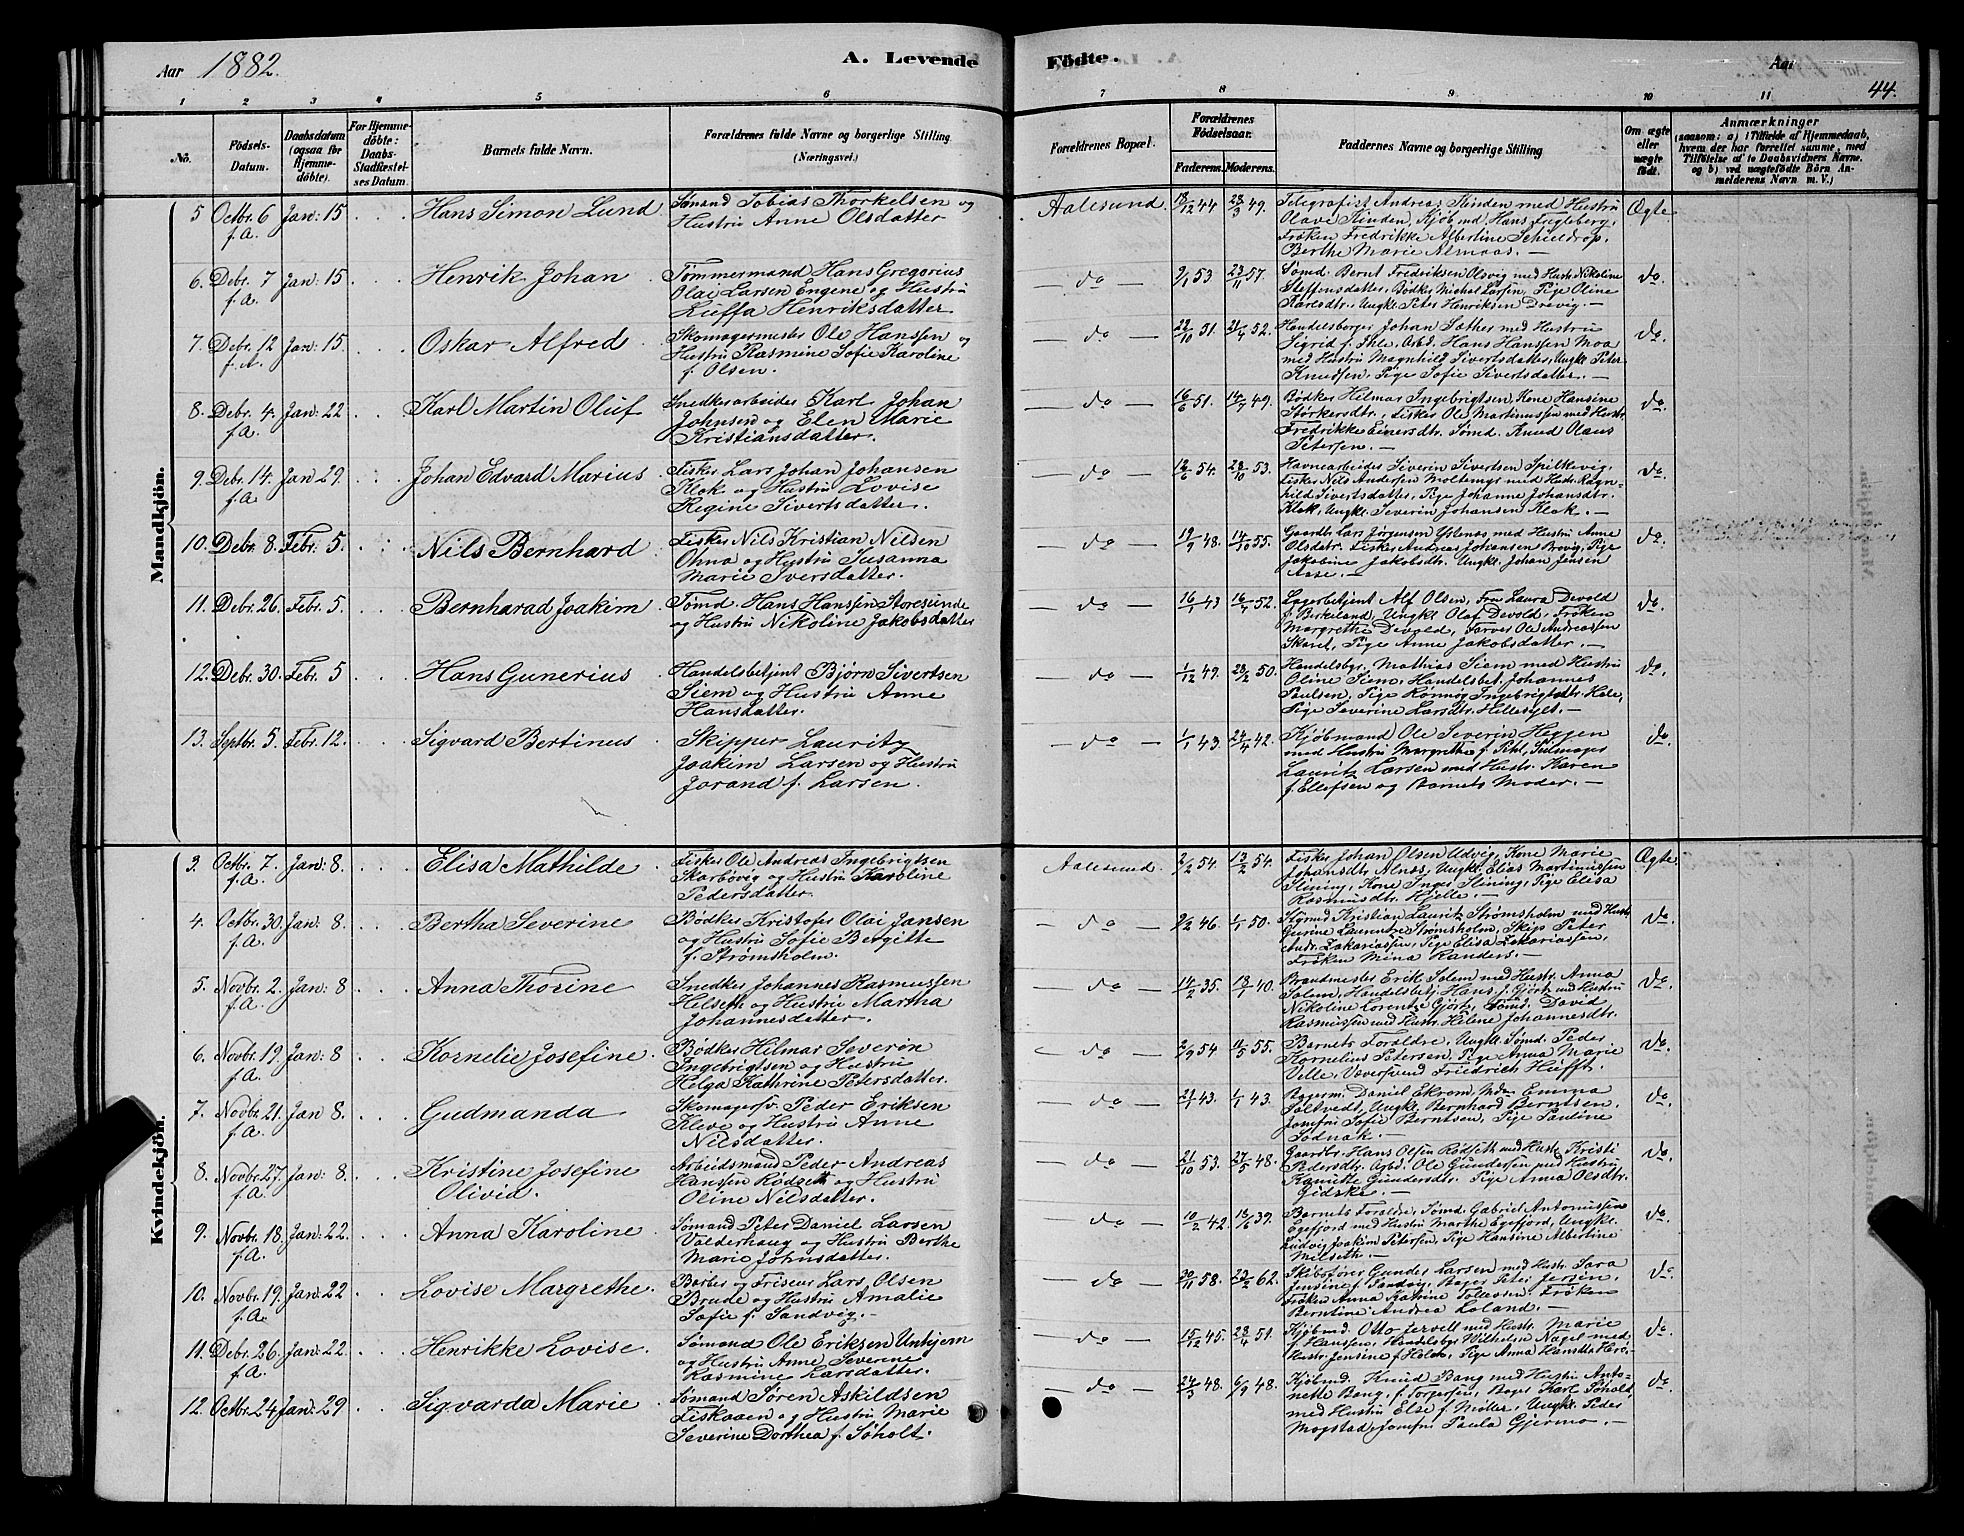 Aar 1882. A. Levende Födte. Aar 44.
1 2 3 4 5 6 7 8 9 10 11
No. Födsels-Datum. Daabsdatum (ogsaa for Hjemmedöbte). For Hjemmedöbte: Daabs-Stadfæstelses Datum. Barnets fulde Navn. Forældrenes fulde Navne og borgerlige Stilling (Næringsvei.) Forældrenes Bopæl. Forældrenes Födselsaar. Faderens. Moderens. Faddernes Navne og borgerlige Stilling Om ægte eller uægte födt. Anmærkninger
(saasom: a) i Tilfælde af Hjemmedaab, hvem der har forrettet samme, med Tilföielse af to Daabsvidners Navne, og b) ved uægtefödte Börn Anmelderens Navn m. V.)
Mandkjön.
5 Octbr. 6 f.A. Jan: 15 Hans Simon Lund Sømand Tobias Thorkelsen og
Hustru Anne Olsdatter
Aalesund. 18/12 44 23/3 49. Telegrafist Andreas Stinden med Hustru
Olave Stinden, Kjøbmd. Hans Fugleberg,
Frøken Fredrikke Albertine Schieldrop,
Berthe Marie Alnaas. Ægte
6. Debr. 7 f.A. Jan: 15 Henrik Johan Tømmermand Hans Gregorius
Olai Larsen Engene og Hustru
Zieffa Henriksdatter
do 9/1 53 23/11 57. Sømd. Bernt Fredriksen Olsvig med Hustr. Nikoline
Steffensdatter, Bødker Michal Larsen, Pige Oline
Karlsdtr. Ungkl. Peter Henriksen Drevig. do
7. Debr. 12 f.A. Jan: 15. Oskar Alfred Skomagermester Ole Hanssen og
Hustru Rasmine Sofie Karoline
f. Olsen.
do 22/10 51. 21/4 52. Handelsborger Johan Sæther med Hustru
Sigrid f. Ihle, Arbd. Hans Hanssen Moa
med Hustru Magnhild Sivertsdatter, Ungkl. Peter
Knudsen, Pige Sofie Sivertsdatter. do.
8. Debr. 4. f.A. Jan: 22 Karl Martin Oluf Snedkerarbeider Karl Johan
Johnsen og Elen Marie
Kristiansdatter.
do 16/6 51. 14/7 49. Bødker Hilmar Ingebrigtsen, Kone Hansine
Størkersdtr. Fisker Ole Martinussen med Hustr.
Fredrikke Einersdtr. Sømd. Knud Olaus
Petersen. do.
9. Debr. 14. f.A. Jan 29. Johan Edvard Marius Fisker Lars Johan Johansen
Klok og Hustru Lovise
Regine Sivertsdatter.
do 12/6 54. 23/10 53. Havnearbeider Severin Sivertsen Spilkevig,
Fisker Nils Andersen Moltemyr med Hustr. Ragnehild Sivertsdatter, Pige Johanne Johansdtr.
Klok, Ungkl. Severin Johansen Klok. do.
10. Debr. 8. Febr: 5. Nils Bernhard Fisker Nils Kristian Nilsen
Ohna og Hustru Susanna
Marie Iversdatter.
do 19/9 48. 14/10 55. Gaardb. Lars Jørgensen Ystenes med Hustru Anne
Olsdatr. Fisker Andreas Johansen Brevig, Pige
Jakobine Jakobsdtr. Ungkl. Johan Jensen
Aase. do.
11. Debr. 26. Febr. 5. Bernharad Joakim Tømd. Hans Hanssen Storesunde
og Hustru Nikoline Jakobsdatter
do 16/1 43 52. Lagerbetjent Alf Olsen, Fru Laura Devold
f. Birkeland, Ungkl. Olaf Devold, Frøken
Margrethe Devold, Farver Ole Andreassen
Skaret, Pige Anne Jakobsdatter. do.
12. Debr. 30. Febr. 5 Hans Gunerius Handelsbetjent Bjørn Sivertsen
Siem og Hustru Anne
Hansdatter.
do 1/12 49. 28/2 50. Handelsbgr. Mathias Siem med Hustru
Oline Siem, Handelsbet. Johannes
Paulsen, Pige Rønnøg Ingebrigtsdtr. Hole,
Pige Severine Larsdtr. Hellesylt. do.
13. Septbr. 5. Febr. 12. Sigvard Bertinus Skipper Lauritz
Joakim Larsen og Hustru
Jorand f. Larsen.
do 1/1 43. 24/4 42. Kjøbmand Ole Severin Heggen
med Hustru Margrethe f. Pihl, Seilmager
Lauritz Larsen med Hustr. Karen
f. Ellefsen og Barnets Moder. do.
Kvindekjön.
3. Octbr. 7. f.A. Jan: 8. Elisa Mathilde Fisker Ole Andreas Ingebrigtsen
Skarbøvig og Hustru Karoline
Pedersdatter.
Aalesund. 2/2 54. 13/2 54. Fisker Johan Olsen Udvig, Kone Marie
Johansdtr. Alnæs, Ungkl. Elias Martinussen
Slining, Kone Inger Slining, Pige Elisa
Rasmusdtr. Hjelle. Ægte
4. Octbr. 30. f.A. Jan: 8 Bertha Severine Bødker Kristofer Olai Jansen
og Hustru Sofie Bergitte
f. Strømsholm.
do 9/2 46. 1/1 50. Styrmd Kristian Lauritz Strømsholm med Hustr.
Gurine Laurentze Strømsholm, Skip. Peter
Andr. Zakariassen, Pige Elisa Zakariassen,
Frøken Mina Randers. do.
5. Novbr. 2. f.A. Jan: 8 Anna Thorine Snedker Johannes Rasmussen
Helseth og Hustru Martha
Johannesdatter.
do 14/2 35. 13/1 40. Brandmester Erik Solem med Hustr. Anna
Solem, Handelsbetj. Hans J. Gjørtz med Hustru
Nikoline Lorentze Gjørtz, Tømd. David
Rasmussen med Hustr. Heline Johannesdtr. do.
6. Novbr. 19. f.A. Jan: 8 Kornelie Josefine Bødker Hilmar Severin
Ingebrigtsen og Hustru
Helga Kathrine Petersdatter.
do 2/9 54 11/5 55. Barnets Forældre, Ungkl. Sømd. Peder
Kornelius Petersen, Pige Anna Marie
Ville, Væversvend Friedrich Hüfft. do.
7. Novbr. 21. f.A. Jan 8. Gudmanda Skomagersv. Peder Eriksen
Kleve og Hustru Anne
Nilsdatter.
do 21/1 43. 1/1 43. Bogerm. Daniel Ekrom, Mda. Emma
Joltvedt, Ungkl. Bernhard Berntsen,
Jomfru Sofie Berntsen, Pige Pauline
Sodnak. do.
8. Novbr. 27. f.A. Jan: 8. Kristine Josefine
Olivia. Arbeidsmand Peder Andreas
Hanssen Rødseth og Hustru
Oline Nilsdatter.
do 21/10 53. 27/5 48. Gaardbr. Hans Olsen Rødseth med Hustr. Kristi
Pedersdtr. Arbd. Ole Gundersen med Hustru
Kanutte Gundersdtr. Pige Anna Olsdtr.
Gidske. do.
9. Novbr. 18. f.A. Jan: 22. Anna Karoline Sømand Peter Daniel Larsen
Valderhaug og Hustru Berthe
Marie Johnsdatter.
do 10/2 42. 18/6 39. Barnets Forældre, Sømd. Gabriel Antonissen
Egefjord med Hustru Marthe Egefjord, Ungkl.
Ludvig Joakim Petersen, Pige Hansine Albertine
Milseth. do.
10. Novbr. 19. f.A. Jan: 22 Lovise Margrethe. Barber og Friseur Lars Olsen
Brude og Hustru Amalie
Sofie f. Sandvig.
do 30/11 58. 23/2 62. Skibsfører Gunder Larsen med Hustr. Sara
Jensine f. Sandvig, Bager Peter Jersin,
Frøken Anna Katrine Tollevsen, Frøken
Berntine Andrea Loland. do
11. Debr. 26. f.A. Jan: 22. Henrikke Lovise. Sømand Ole Eriksen Unhjem
og Hustru Anne Severine
Rasmine Larsdatter.
do 15/12 45. 23/4 51. Kjøbmd. Otto Jervell med Hustr. Marie
f. Hanssen, Handelsbgr. Wilhelm Nagel med
Hustr. Jensine f. Holck, Pige Anna Hansdtr. Herø. do.
12. Octbr. 24 Jan: 29 Sigvarda Marie Sømand Søren Askildsen
Fiskaaen og Hustru Marie
Severine Dorthea f. Søholt.
do 24/3 48. 6/9 48. Kjøbmd. Knud Bang med Hustru Antonette Bang, f. Torgersen, Bager Karl Søholt
med Hustru Else f. Møller, Ungkl. Peder
Mogstad, Jomfru Paula Gjermo. do.